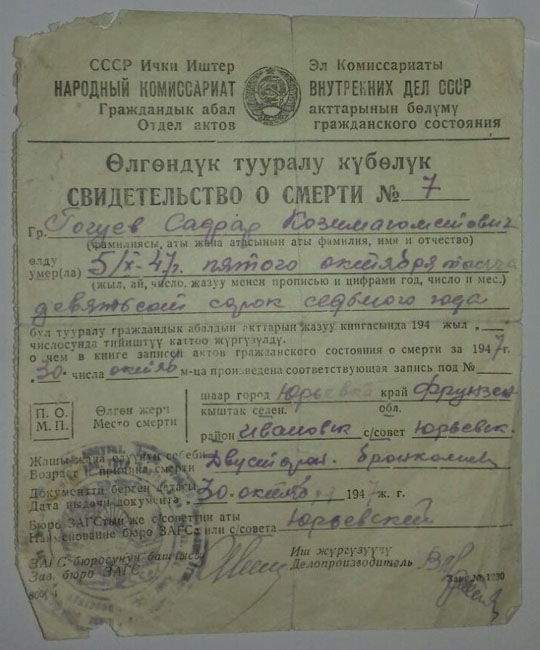 СССР Ички Иштер Эл Комиссариаты
НАРОДНЫЙ КОМИССАРИАТ ВНУТРЕННИХ ДЕЛ СССР
Граждандык абал акттарынын бөлүмү
Отдел актов гражданского состояния
Өлгөндүк тууралу күбөлүк
СВИДЕТЕЛЬСТВО О СМЕРТИ № 7
Гр.
(фамилиясы, аты жана атасынын аты фамилия, имя и отчество)
өлдү
умер(ла) 5/X-47г. пятого октября тысяча
(жыл, ай, число, жазуу менен прописью и цифрами год, число и мес.)
девятьсот сорок седьмого года
бул тууралу граждандык абалдын акттарын жазуу книгасында 194 жыл
числосунда тийиштүү каттоо жүргүзүлдү.
о чем в книге записей актов гражданского состояния о смерти за 1947г.
30 числа октябр м-ца произведена соответствующая запись под №
П. О. Өлгөн жери шаар город край Фрунзен
М. П. Место смерти кыштак селен. обл.
район Ивановск с/совет Юрьевск.
Жашы жана өлүүнүн себеби
Возраст и причина смерти Двусторон.
Документти берген датасы
Дата выдачи документа 30 октябр 1947 ж. г.
Бюро ЗАГСтын же с/советтин аты
Наименование бюро ЗАГСа или с/совета Юрьевский
ЗАГС бюросунун башчысы Иш жүргүзүүчү
Зав. бюро ЗАГС Делопроизводитель